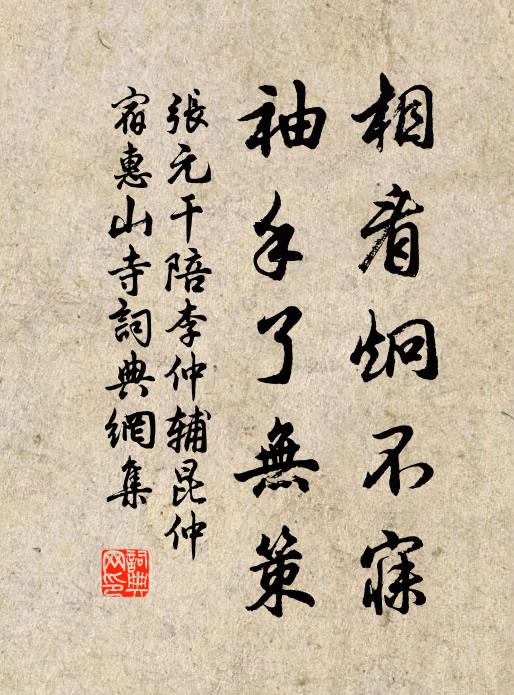 相看炯不寐
袖手了無策
張元干陪李仲辅昆仲
宿惠山寺詞典網集
詞典网印